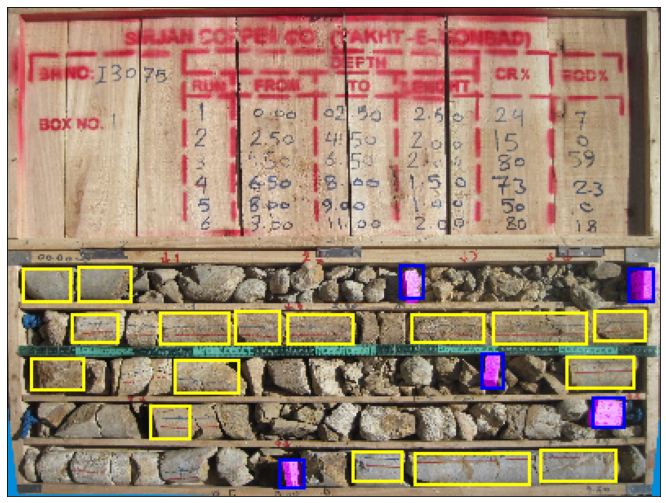 SIRJAN COPPER CO. (TAKHT-E-GONBAD)
DEPTH
BH NO: I3075 RUN FROM TO LENGHT CR% RQD%
1 0.00 02.50 2.50 29 7
BOX NO. 1
2 2.50 4.50 2.00 15 0
3 4.50 6.50 2.00 80 59
4 6.50 8.00 1.50 73 23
5 8.00 9.00 1.00 50 0
6 9.00 11.00 2.00 80 18